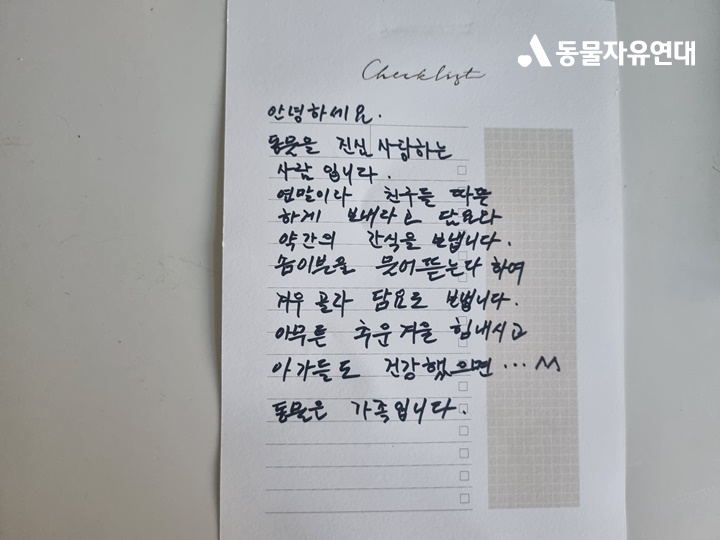 동물자유연대
Checklist
안녕하세요.
동물을 진심 사랑하는
사람 입니다.
연말이라 친구들 따뜻
하게 보내라고 담요와
약간의 간식을 보냅니다.
솜이불은 물어뜯는다 하여
겨우 골라 담요로 보냅니다.
아무튼 추운 겨울 힘내시고
아가들도 건강했으면...
동물은 가족입니다.